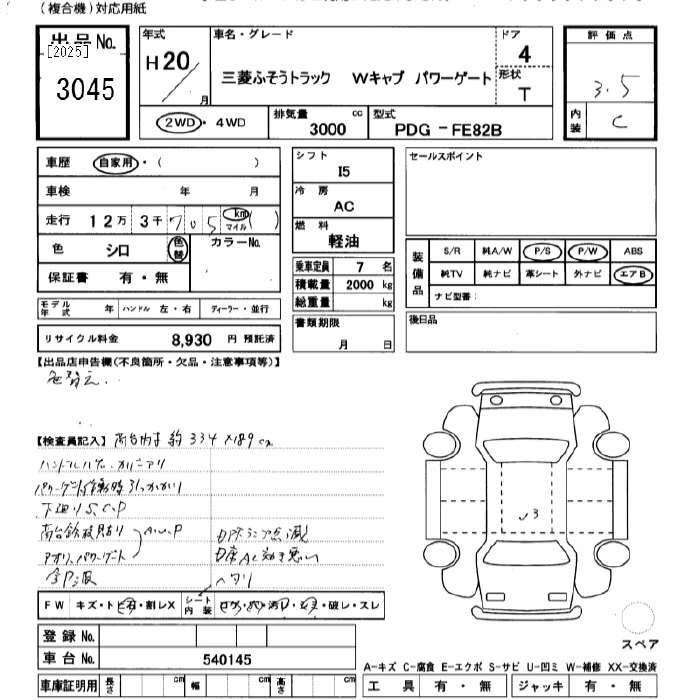 (複合機)対応用紙
出品No.
[2025]
3045
年式
H20/
月
車名・グレード
三菱ふそうトラック Wキャブ パワーゲート
ドア
4
形状
T
評価点
3.5
内装
C
2WD・4WD
排気量
3000 cc
型式
PDG-FE82B
車歴 自家用・( )
車検 年 月
走行 12万 3千 705 km マイル ( )
色 シロ 色替 カラーNo.
保証書 有・無
モデル年式 年 ハンドル 左・右 ディーラー・並行
リサイクル料金 8,930 円 預託済
シフト
I5
冷房
AC
燃料
軽油
乗車定員 7 名
積載量 2000 kg
総重量 kg
書類期限
月 日
セールスポイント
装備品
S/R 純A/W P/S P/W ABS
純TV 純ナビ 革シート 外ナビ エアB
ナビ型番:
後日品
【出品店申告欄(不良箇所・欠品・注意事項等)】
色替え
【検査員記入】 荷台内寸 約 334×189cm
パワーゲート作動時引っかかり
下回りS,C,P
アオリ,パワーゲート
A,U,P
DPFランプ点滅
D席AC効き悪い
ヘタリ
3
FW キズ・トビ石・割レX
シート内装 コゲ・穴・汚レ・シミ・破レ・スレ
登録No.
車台No. 540145
車庫証明用 長さ cm 幅 cm 高さ cm
スペア
A-キズ C-腐食 E-エクボ S-サビ U-凹ミ W-補修 XX-交換済
工具 有・無 ジャッキ 有・無